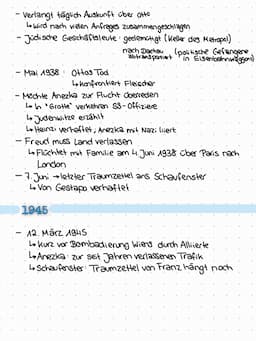 - Verlangt täglich Auskunft über Otto
↳ Wird nach vielen Anfragen zusammengeschlagen
- Jüdische Geschäftsleute: gedemütigt (Keller des Metropol)
nach Dachau abtransportiert (politische Gefangene in Eisenbahnwaggon)
- Mai 1938: Ottos Tod
↳ konfrontiert Fleischer
- Möchte Anezka zur Flucht überreden
↳ In "Grotte" verkehren SS-Offiziere
↳ Judenwitze erzählt
↳ Heinzi verhaftet, Anezka mit Nazi liiert
- Freud muss Land verlassen
↳ Flüchtet mit Familie am 4. Juni 1938 über Paris nach London
- 7. Juni → letzter Traumzettel ans Schaufenster
↳ Von Gestapo verhaftet
1945
- 12. März 1945
↳ Kurz vor Bombadierung Wiens durch Alliierte
↳ Anezka: zur seit Jahren verlassenen Trafik
↳ Schaufenster: Traumzettel von Franz hängt noch